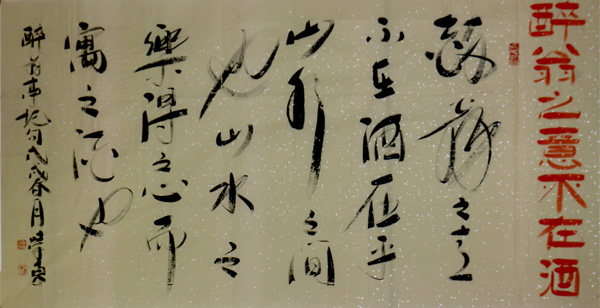 醉翁之意不在酒
醉翁之意
不在酒在乎
山水之间
也山水之
樂得之心而
寓之酒也
醉翁亭记句戊戌春月